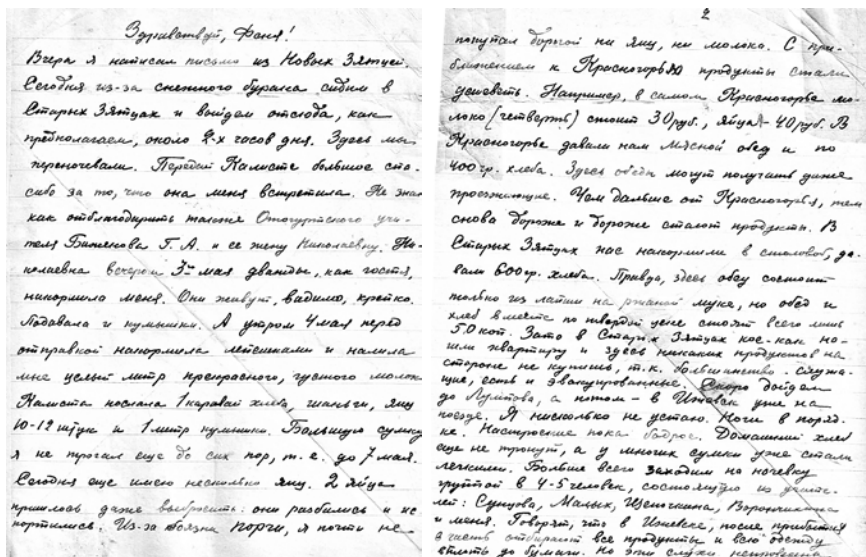 Здравствуй, Феня!
Вчера я написал письмо из Новых Зятцей.
Сегодня из-за снежного бурана сидим в
Старых Зятцах и выйдем отсюда, как
предполагаем, около 2-х часов дня. Здесь мы
переночевали. Передай Калисте большое спа-
сибо за то, что она меня встретила. Не знаю
как отблагодарить также учи-
теля Баженова Г. А. и его жену Николаевну. Ни-
колаевна вечером 3го мая дважды, как гостя,
накормила меня. Они живут, видимо, крепко.
Подавала и кумышки. А утром 4 мая перед
отправкой накормила лепешками и налила
мне целый литр прекрасного, густого молока
Калиста послала 1 каравай хлеба, шаньги, яиц
10-12 штук и 1 литр кумышки. Большую сумку
я не трогал еще до сих пор, т. е. до 7 мая.
Сегодня еще имею несколько яиц. 2 яйца
пришлось даже выбросить: они разбились и ис
портились. Из-за боязни порчи, я почти не
2
покупал дорогой ни яиц, ни молока. С при-
ближением к Красногорью продукты стали
дешеветь. Например, в самом Красногорье мо-
локо (четверть) стоит 30 руб., яйца - 40 руб. В
Красногорье давали нам мясной обед и по
400 гр. хлеба. Здесь обеды могут получить даже
проезжающие. Чем дальше от Красногорья, тем
снова дороже и дороже стают продукты. В
Старых Зятцах нас накормили в столовой, да-
вали 600 гр. хлеба. Правда, здесь обед состоит
только из лапши на ржаной муке, но обед и
хлеб вместе по твердой цене стоят всего лишь
50 коп. Зато в Старых Зятцах кое-как на-
шли квартиру и здесь никаких продуктов на
стороне не купишь, т. к. большинство - служа-
щие, есть и эвакуированные. Скоро дойдем
до а потом - в Ижевск уже на
поезде. Я нисколько не устаю. Ноги в поряд-
ке. Настроение пока бодрое. Домашний хлеб
еще не тронут, а у многих сумки уже стали
легкими. Больше всего заходим на ночевку
группой в 4-5 человек, состоящую из учите-
лей: Сунцова, Малых, Щепочкина, Ворончихина
и меня. Говорят, что в Ижевске, после прибытия
в часть отбирают все продукты и всю одежду
вплоть до бумаги. Но эти слухи